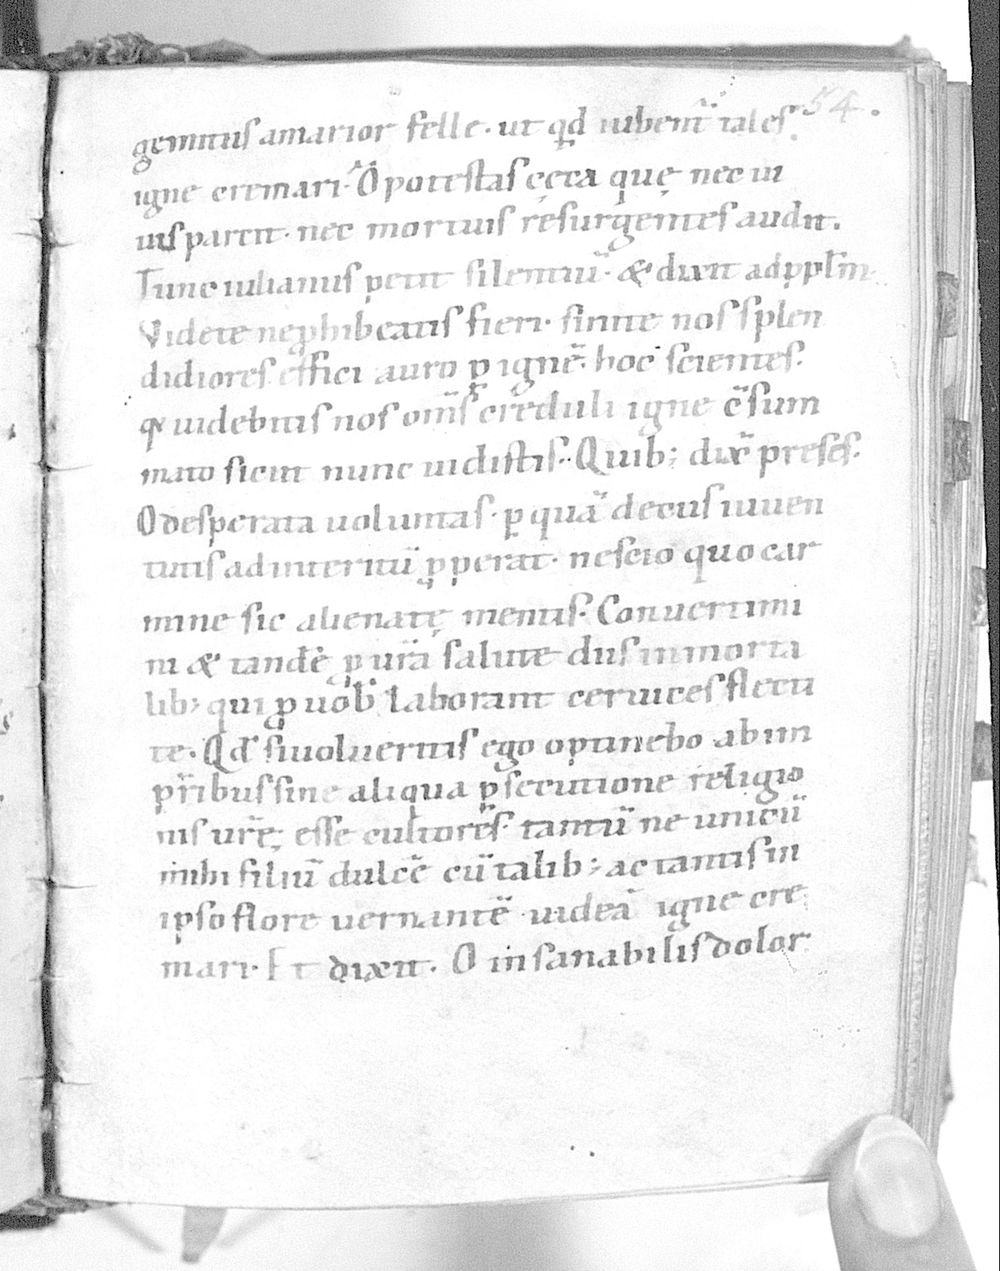 54.
gemitus amarior felle. ut qd iubent͛ tales
igne cremari. O potestas cęca quę nec ui
uis parcit. nec mortuis resurgentes audit.
Tunc iulianus petit silentiū. & dixit ad pplm̄
Videte ne phibeatis fieri. sinite nos splen
didiores effici auro ꝑ ignē. hoc scientes.
qa uidebitis nos om̄s creduli igne c̄sum
mato sicut nunc uidistis. Quib; dix̄ preses.
O desperata uoluntas. ꝑ quā decus iuuen
tutis ad interitū ꝓperat. nescio quo car
mine sic alienatę mentis. Conuertimi
ni & tandē ꝓ ur̄a salute diis inmorta
lib; qui ꝓ uob̄ laborant ceruices flecti
te. Qd̄ si uolueritis ego optinebo ab im
ꝑrībus sine aliqua ꝑsecutione religio
nis ur̄ę esse cultores. tantū ne unicū
mihi filiū dulcē cū talib; ac tantis in
ipso flore uernantē uideā igne cre
mari. Et dixit. O insanabilis dolor